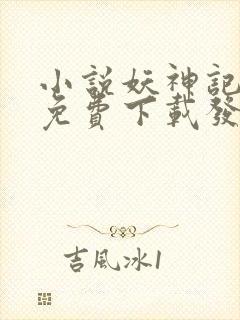 小說妖神記
免費下載發
吉風冰1